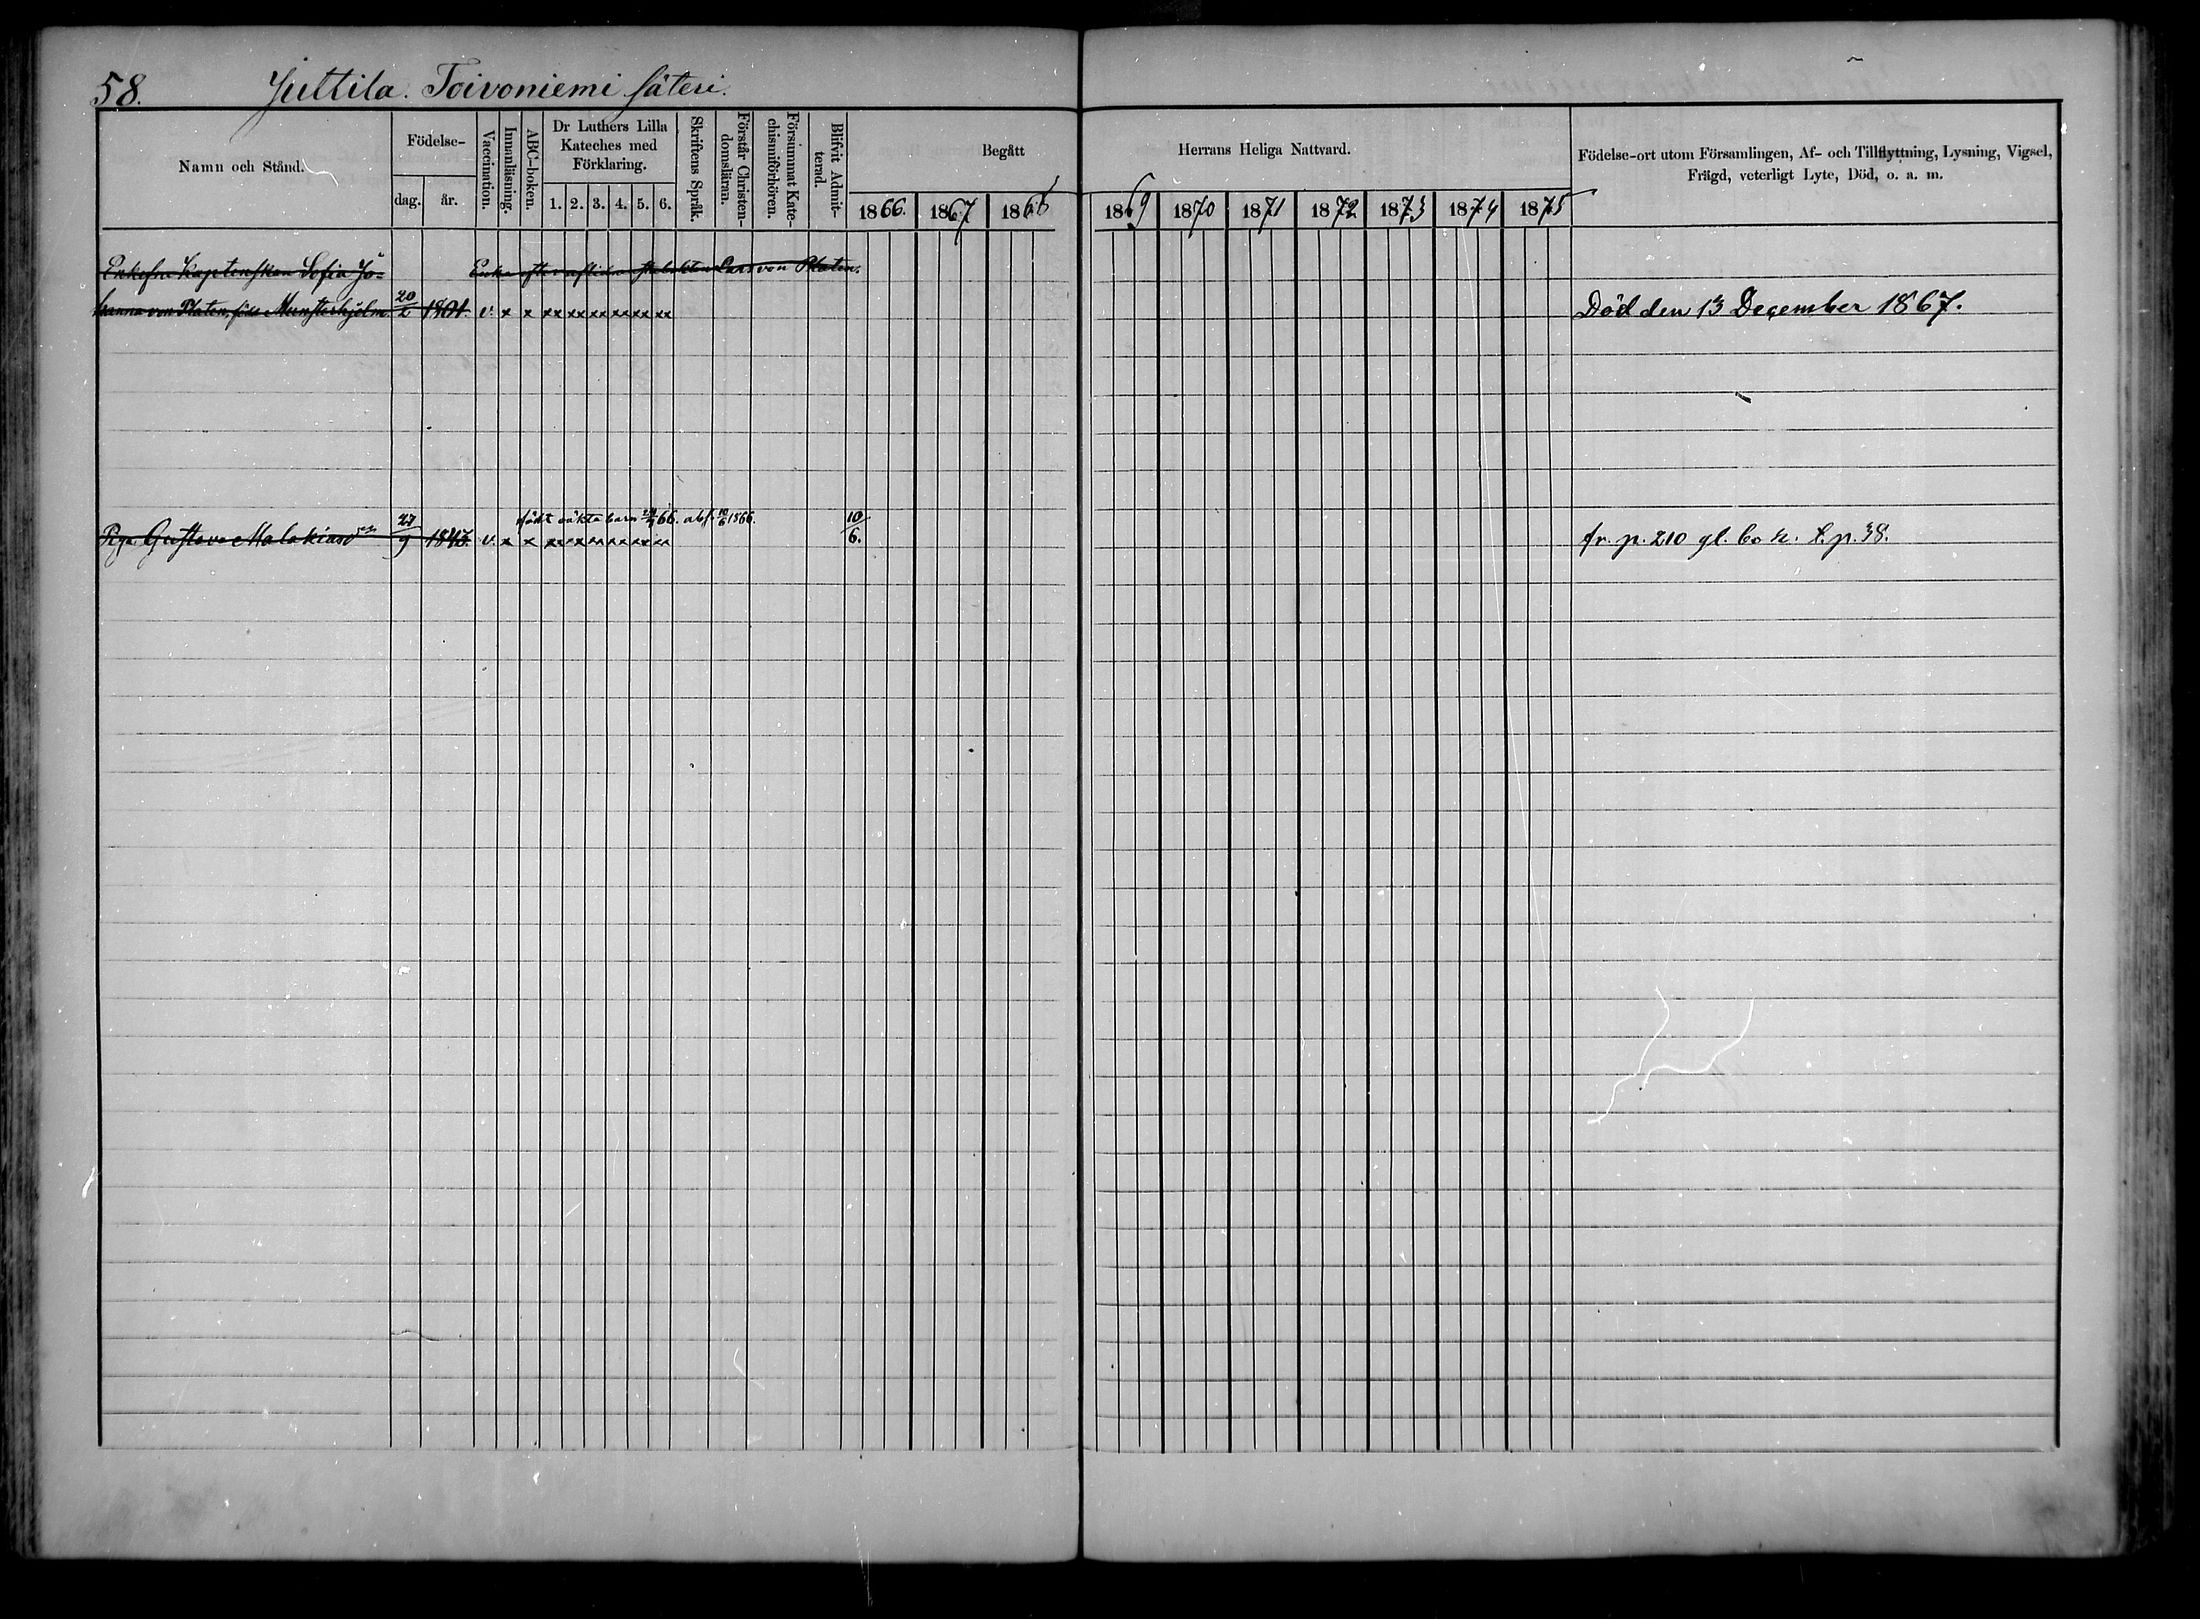 58. Juttila. Toivoniemi säteri.
Namn och Stånd.
Födelse-
dag. år.
Vaccination.
Innanläsning.
ABC-boken.
Dr Luthers Lilla
Kateches med
Förklaring.
1. 2. 3. 4. 5. 6.
Skriftens Språk.
Förstår Christen-
domsläran.
Försummat Kate-
chismiförhören.
Blifvit Admit-
terad.
Begått Herrans Heliga Nattvard.
1866. 1867 1868 1869 1870 1871 1872 1873 1874 1875
Födelse-ort utom Församlingen, Af- och Tillflyttning, Lysning, Vigsel,
Frägd, veterligt Lyte, Död, o. a. m.
Enkefru Kaptenskan Sofia Jo= Enka efter Lars von Platen.
hanna von Platen, född Munsterhjelm 20/2 1801. v. x x xx xx xx xx xx xx Död den 13 December 1867.
födt oäkta barn 66. abs. 10/6 1866.
Pigan Gustava Malakiasd 27/9 1843. v. x x xx xx xx xx xx xx 10/6. fr. p. 210 gl. bok. t. p. 38.